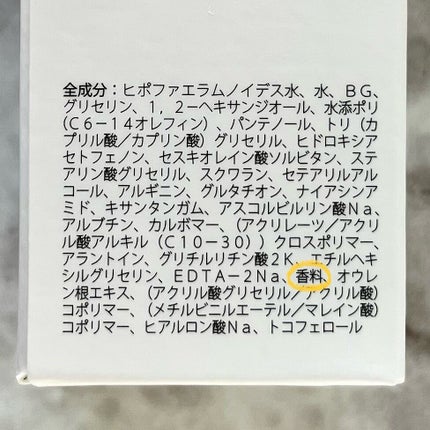 全成分：ヒポファエラムノイデス水、水、ＢＧ、
グリセリン、１，２－ヘキサンジオール、水添ポリ
（Ｃ６－１４オレフィン）、パンテノール、トリ（カ
プリル酸／カプリン酸）グリセリル、ヒドロキシア
セトフェノン、セスキオレイン酸ソルビタン、ステ
アリン酸グリセリル、スクワラン、セテアリルアル
コール、アルギニン、グルタチオン、ナイアシンア
ミド、キサンタンガム、アスコルビルリン酸Ｎａ、
アルブチン、カルボマー、（アクリレーツ／アクリ
ル酸アルキル（Ｃ１０－３０））クロスポリマー、
アラントイン、グリチルリチン酸２Ｋ、エチルヘキ
シルグリセリン、ＥＤＴＡ－２Ｎａ、香料、オウレ
ン根エキス、（アクリル酸グリセリル／アクリル酸）
コポリマー、（メチルビニルエーテル／マレイン酸）
コポリマー、ヒアルロン酸Ｎａ、トコフェロール